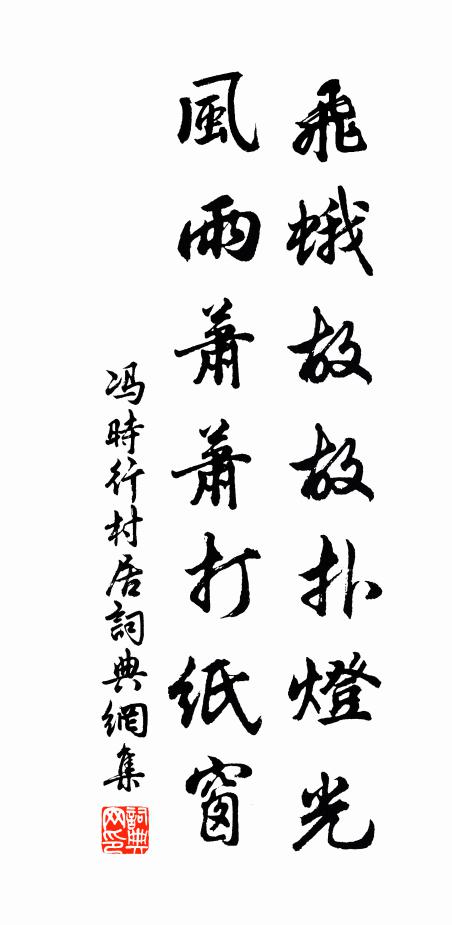 飛蛾故故扑燈光
風雨蕭蕭打紙窗
冯時行村居詞典網集
詞典网印